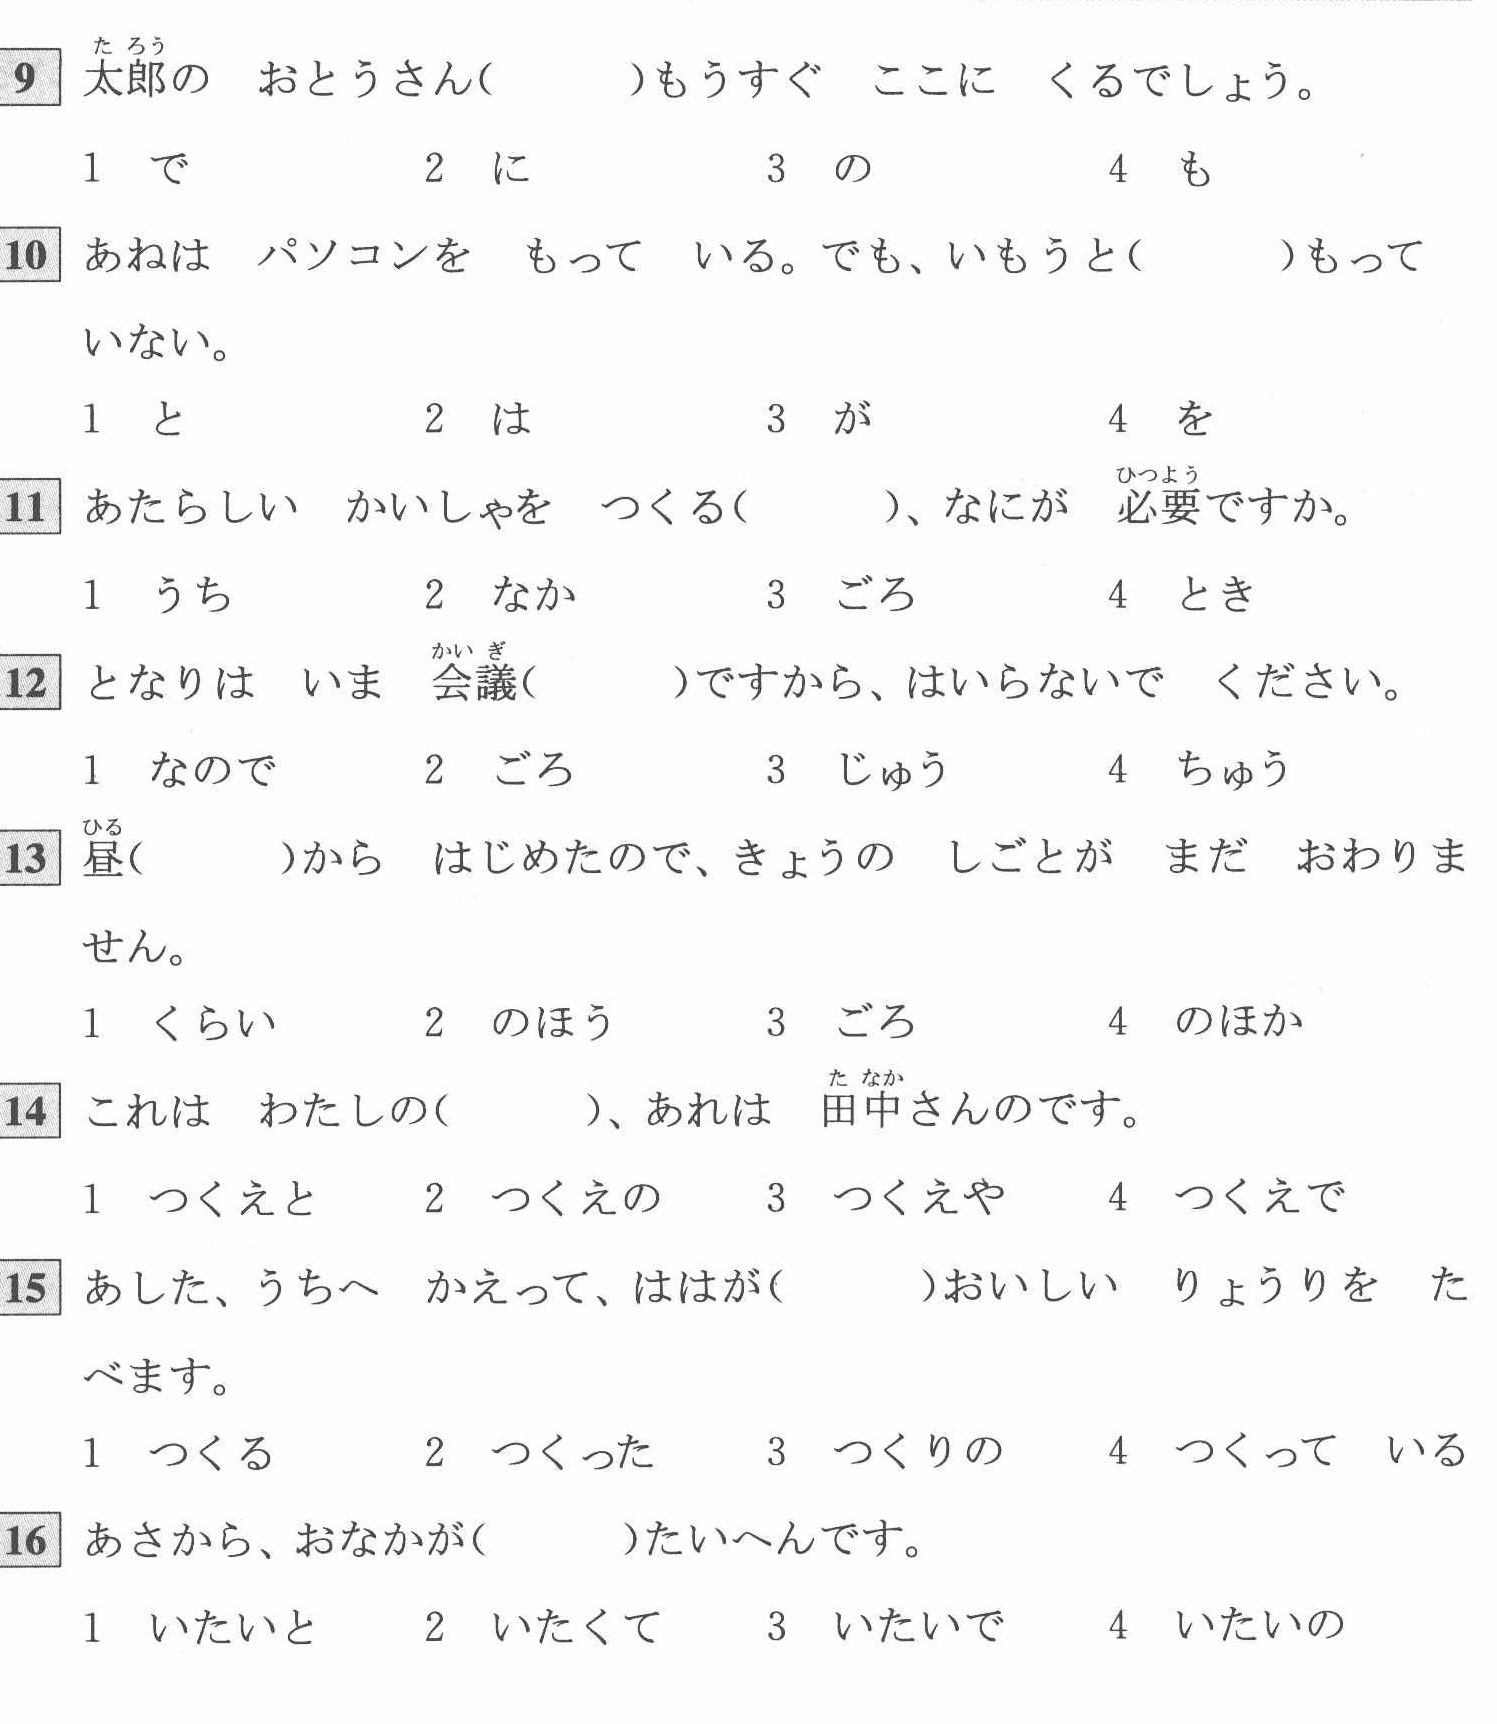 9 太郎の　おとうさん(　　　)もうすぐ　ここに　くるでしょう。
1　で　2　に　3　の　4　も
10 あねは　パソコンを　もって　いる。でも、いもうと(　　　)もって
いない。
1　と　2　は　3　が　4　を
11 あたらしい　かいしゃを　つくる(　　　)、なにが　必要ですか。
1　うち　2　なか　3　ごろ　4　とき
12 となりは　いま　会議(　　　)ですから、はいらないで　ください。
1　なので　2　ごろ　3　じゅう　4　ちゅう
13 昼(　　　)から　はじめたので、きょうの　しごとが　まだ　おわりま
せん。
1　くらい　2　のほう　3　ごろ　4　のほか
14 これは　わたしの(　　　)、あれは　田中さんのです。
1　つくえと　2　つくえの　3　つくえや　4　つくえで
15 あした、うちへ　かえって、ははが(　　　)おいしい　りょうりを　た
べます。
1　つくる　2　つくった　3　つくりの　4　つくって　いる
16 あさから、おなかが(　　　)たいへんです。
1　いたいと　2　いたくて　3　いたいで　4　いたいの